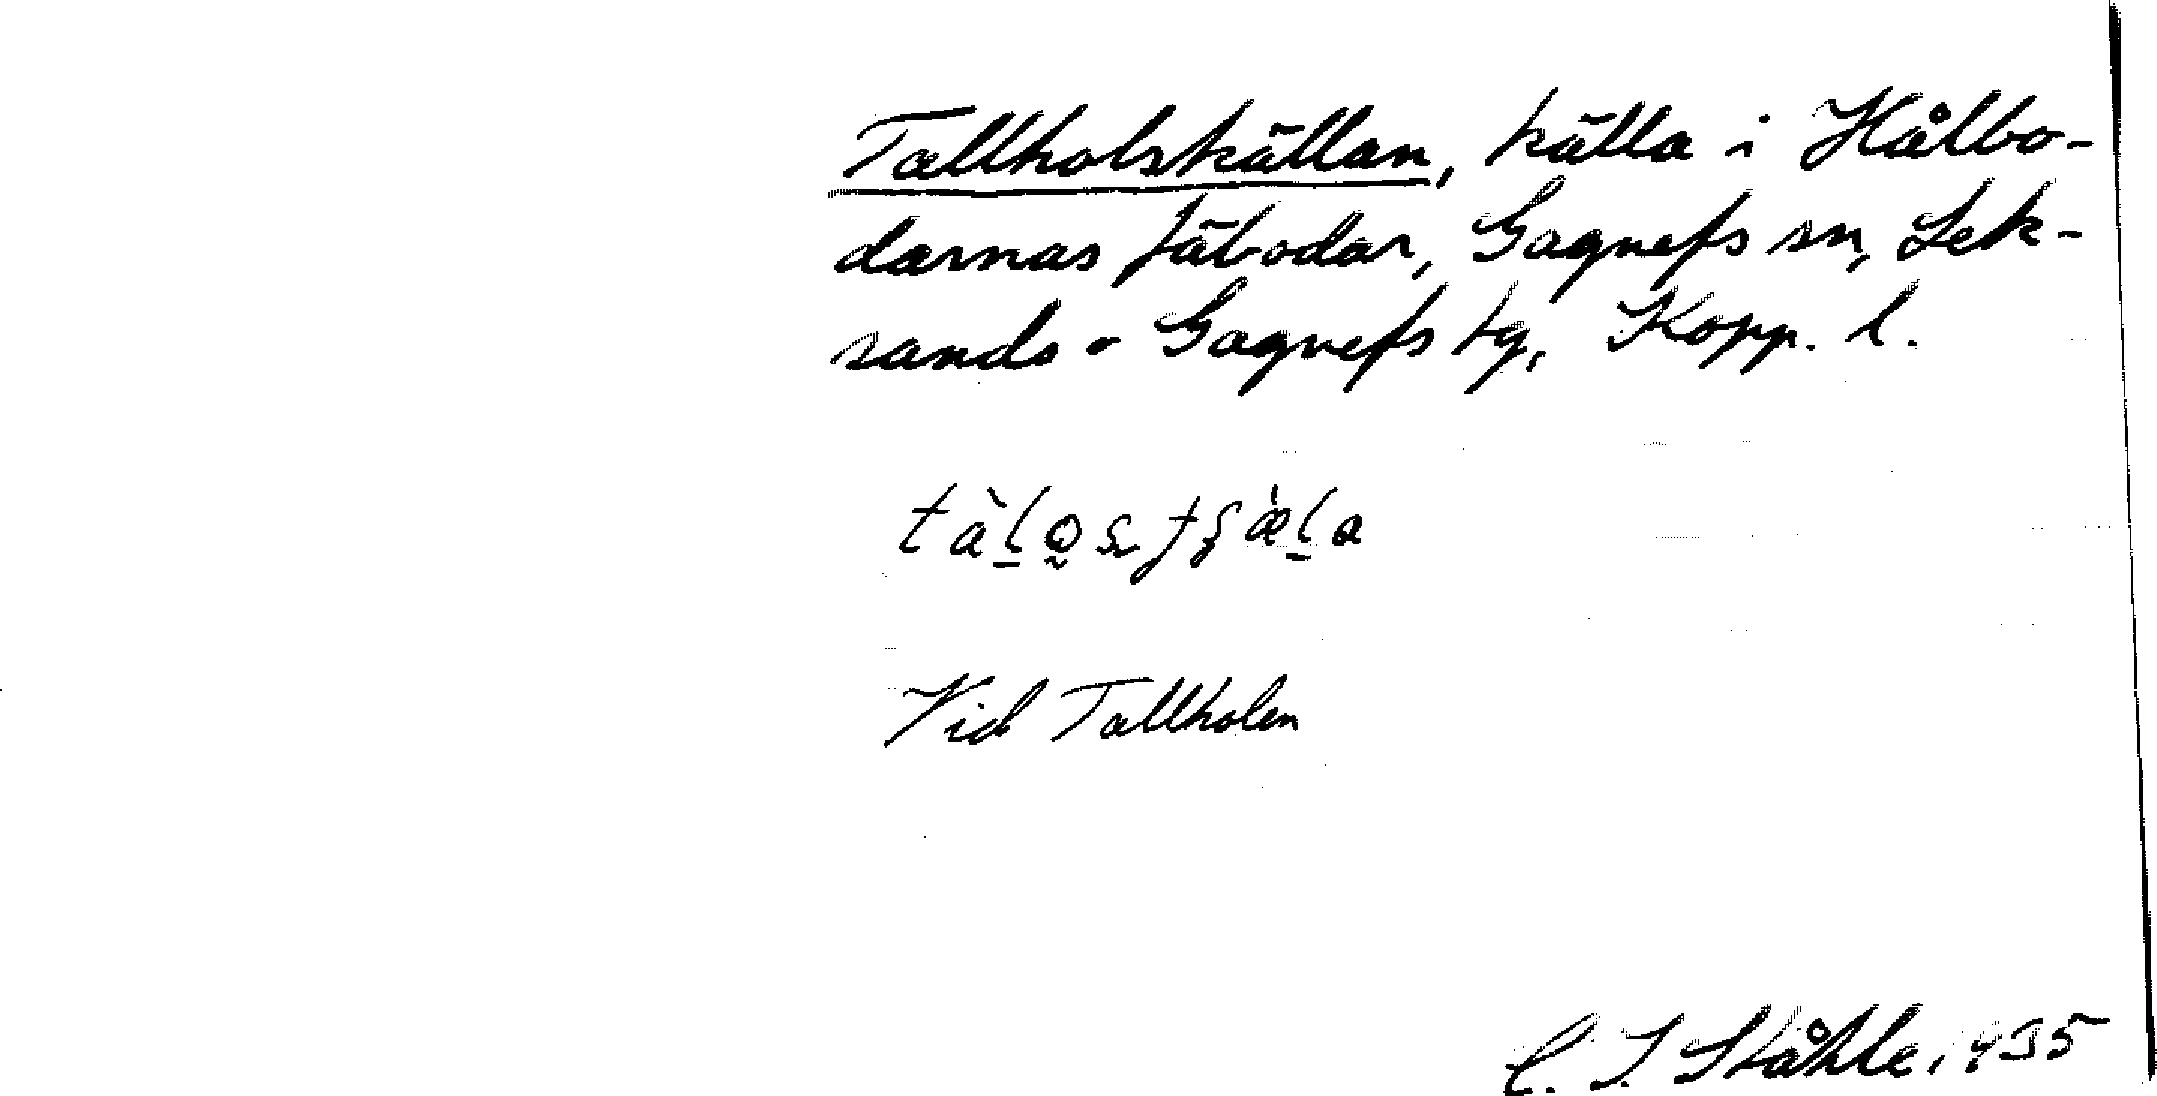 Tallholskällan, källa i Hålbo-
darnas fäbodar, Gagnefs sn, Lek-
sands o Gagnefs tg, Kopp. l.
Vid Tallholen
C. I. Ståhle, 1935